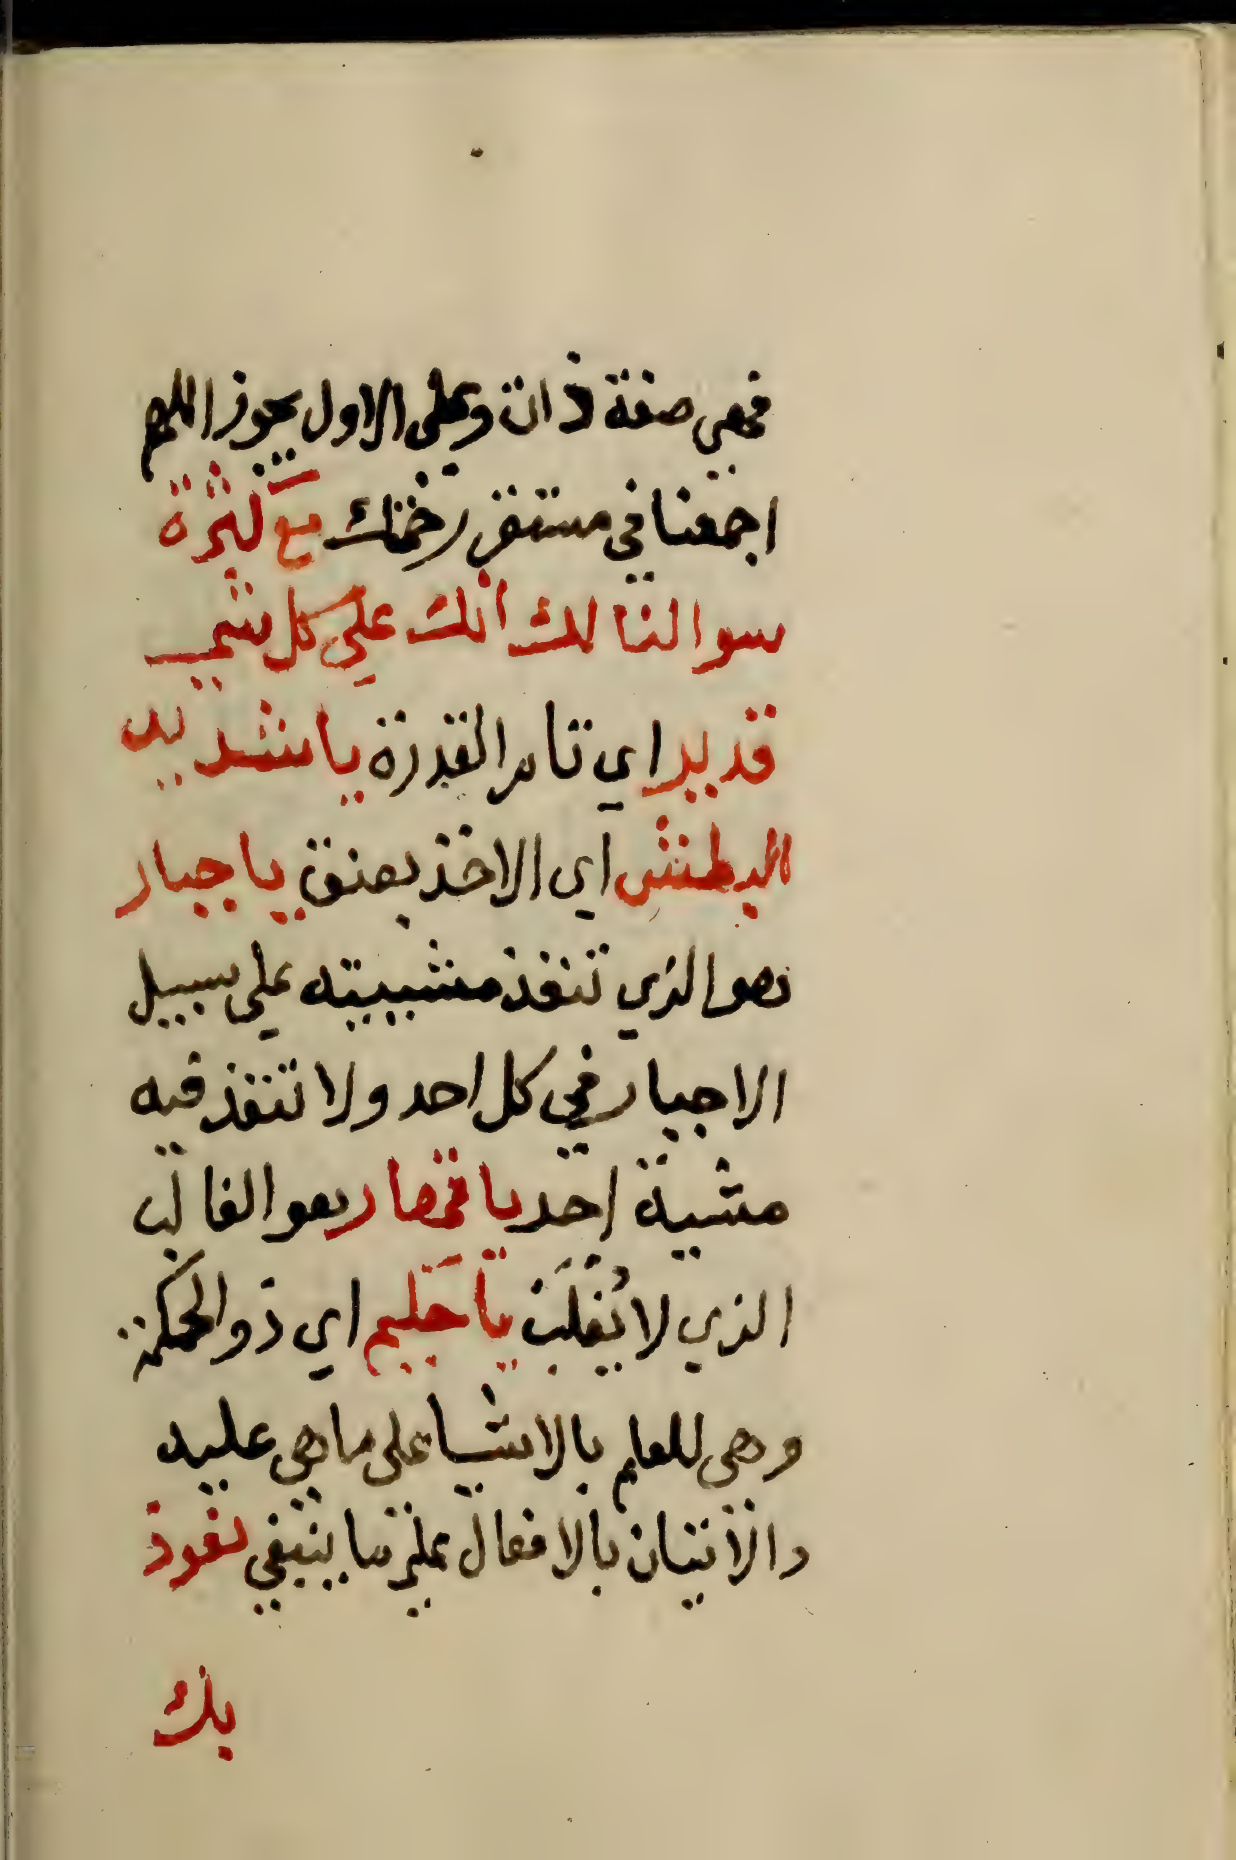 فهي صفة ذات وعلى الاول يجوز اللهم
اجمعنا في مستقر رحمتك مع كثرة
سوالنا لك انك علي كل شي
قدير اي تام القدرة يا شديد
البطش اي الاخذ بعنق يا جبار
هو الذي تنفذ مشييته علي سبيل
الاجبار في كل احد ولا تنفذ فيه
مشية احد يا قهار هو الغالب
الذي لا يُغلَبَ يا حَكيم اي ذو الحكمة
وهي للعلم بالاشيا على ما هي عليه
والاتيان بالافعال على ما ينبغي نعوذ
بك